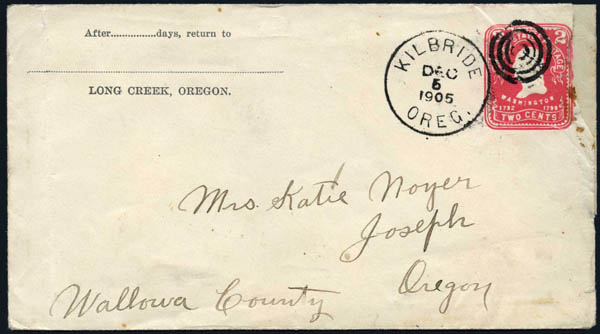 After..............days, return to
LONG CREEK, OREGON.
KILBRIDE
DEC
5
1905
OREG.
WASHINGTON
TWO CENTS
Mrs. Katie Noyer
Joseph
Oregon
Wallowa County